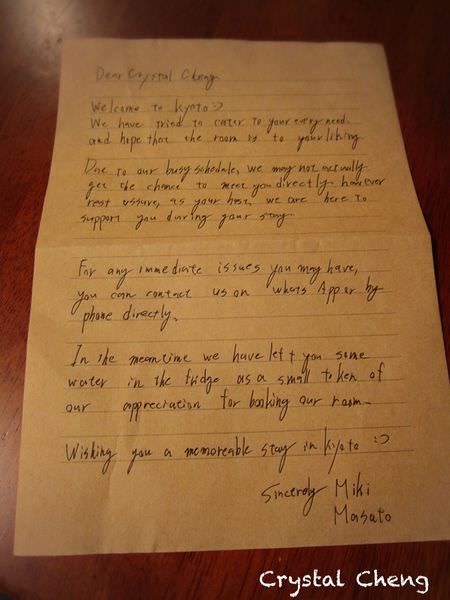 Dear Crystal Cheng
Welcome to kyoto :)
We have tried to cater to your every need.
and hope that the room is to your liking
Due to our busy schedule, we may not actually
get the chance to meet you directly. however
rest assure, as your host, we are here to
support you during your stay.
For any immediate issues you may have,
you can contact us on whats App or by
phone directly.
In the meantime we have left you some
water in the fridge as a small token of
our appreciation for booking our room.
Wishing you a memoreable stay in kyoto :)
Sincerely Miki
Masato
Crystal Cheng